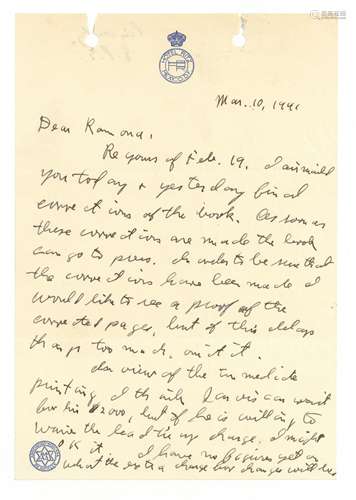 HOTEL RITZ
MEXICO, D.F.
Mar. 10, 1941
Dear Ramona,
Re yours of Feb. 19. I airmailed
you today & yesterday final
corrections of the book. As soon as
these corrections are made the book
can go to press. In order to be sure that
the corrections have been made I
would like to see a proof of the
corrected pages, but if this delays
things too much, omit it.
In view of the immediate
printing I think can wait
for his $2000, but if he is willing to
waive the change. I might
O K it. I have no figures yet on
what the extra charge for changes will be.